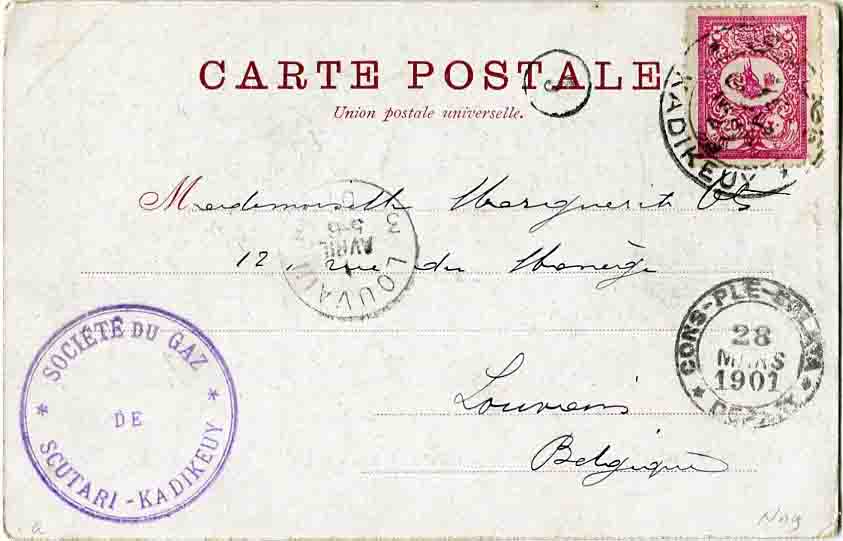 CARTE POSTALE
Union postale universelle.
KADIKEUY
Mademoiselle Marguerite
12, rue du Manège
Louvain
Belgique
3 LOUVAIN
5-6
AVRIL
CONS-PLE-GALATA
28
MARS
1901
DEPART
SOCIÉTÉ DU GAZ
DE
SCUTARI - KADIKEUY